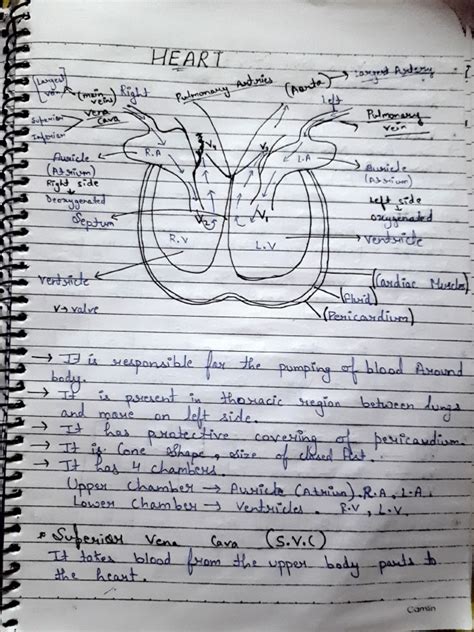 HEART
[Largest vein] (main vein) Right Pulmonary Arteries (Aorta) → Largest Artery
Superior Vena Cava
Inferior
Left
Pulmonary vein
R.A
L.A
Auricle (Atrium)
Right side
Deoxygenated
Septum
Auricle (Atrium)
Left side
oxygenated
Ventricle
R.V
L.V
V1
Ventricle
V → valve
(Cardiac Muscles)
(Fluid)
(Pericardium)
→ It is responsible for the pumping of blood Around
body.
→ It is present in thoracic region between lungs
and more on left side.
→ It has protective covering of pericardium
→ It is Cone shape, size of closed fist.
→ It has 4 chambers.
Upper Chamber → Auricle (Atrium). R.A, L.A.
Lower Chamber → Ventricles. R.V, L.V.
* Superior Vena Cava (S.V.C)
It takes blood from the upper body parts to
the heart.
Camlin